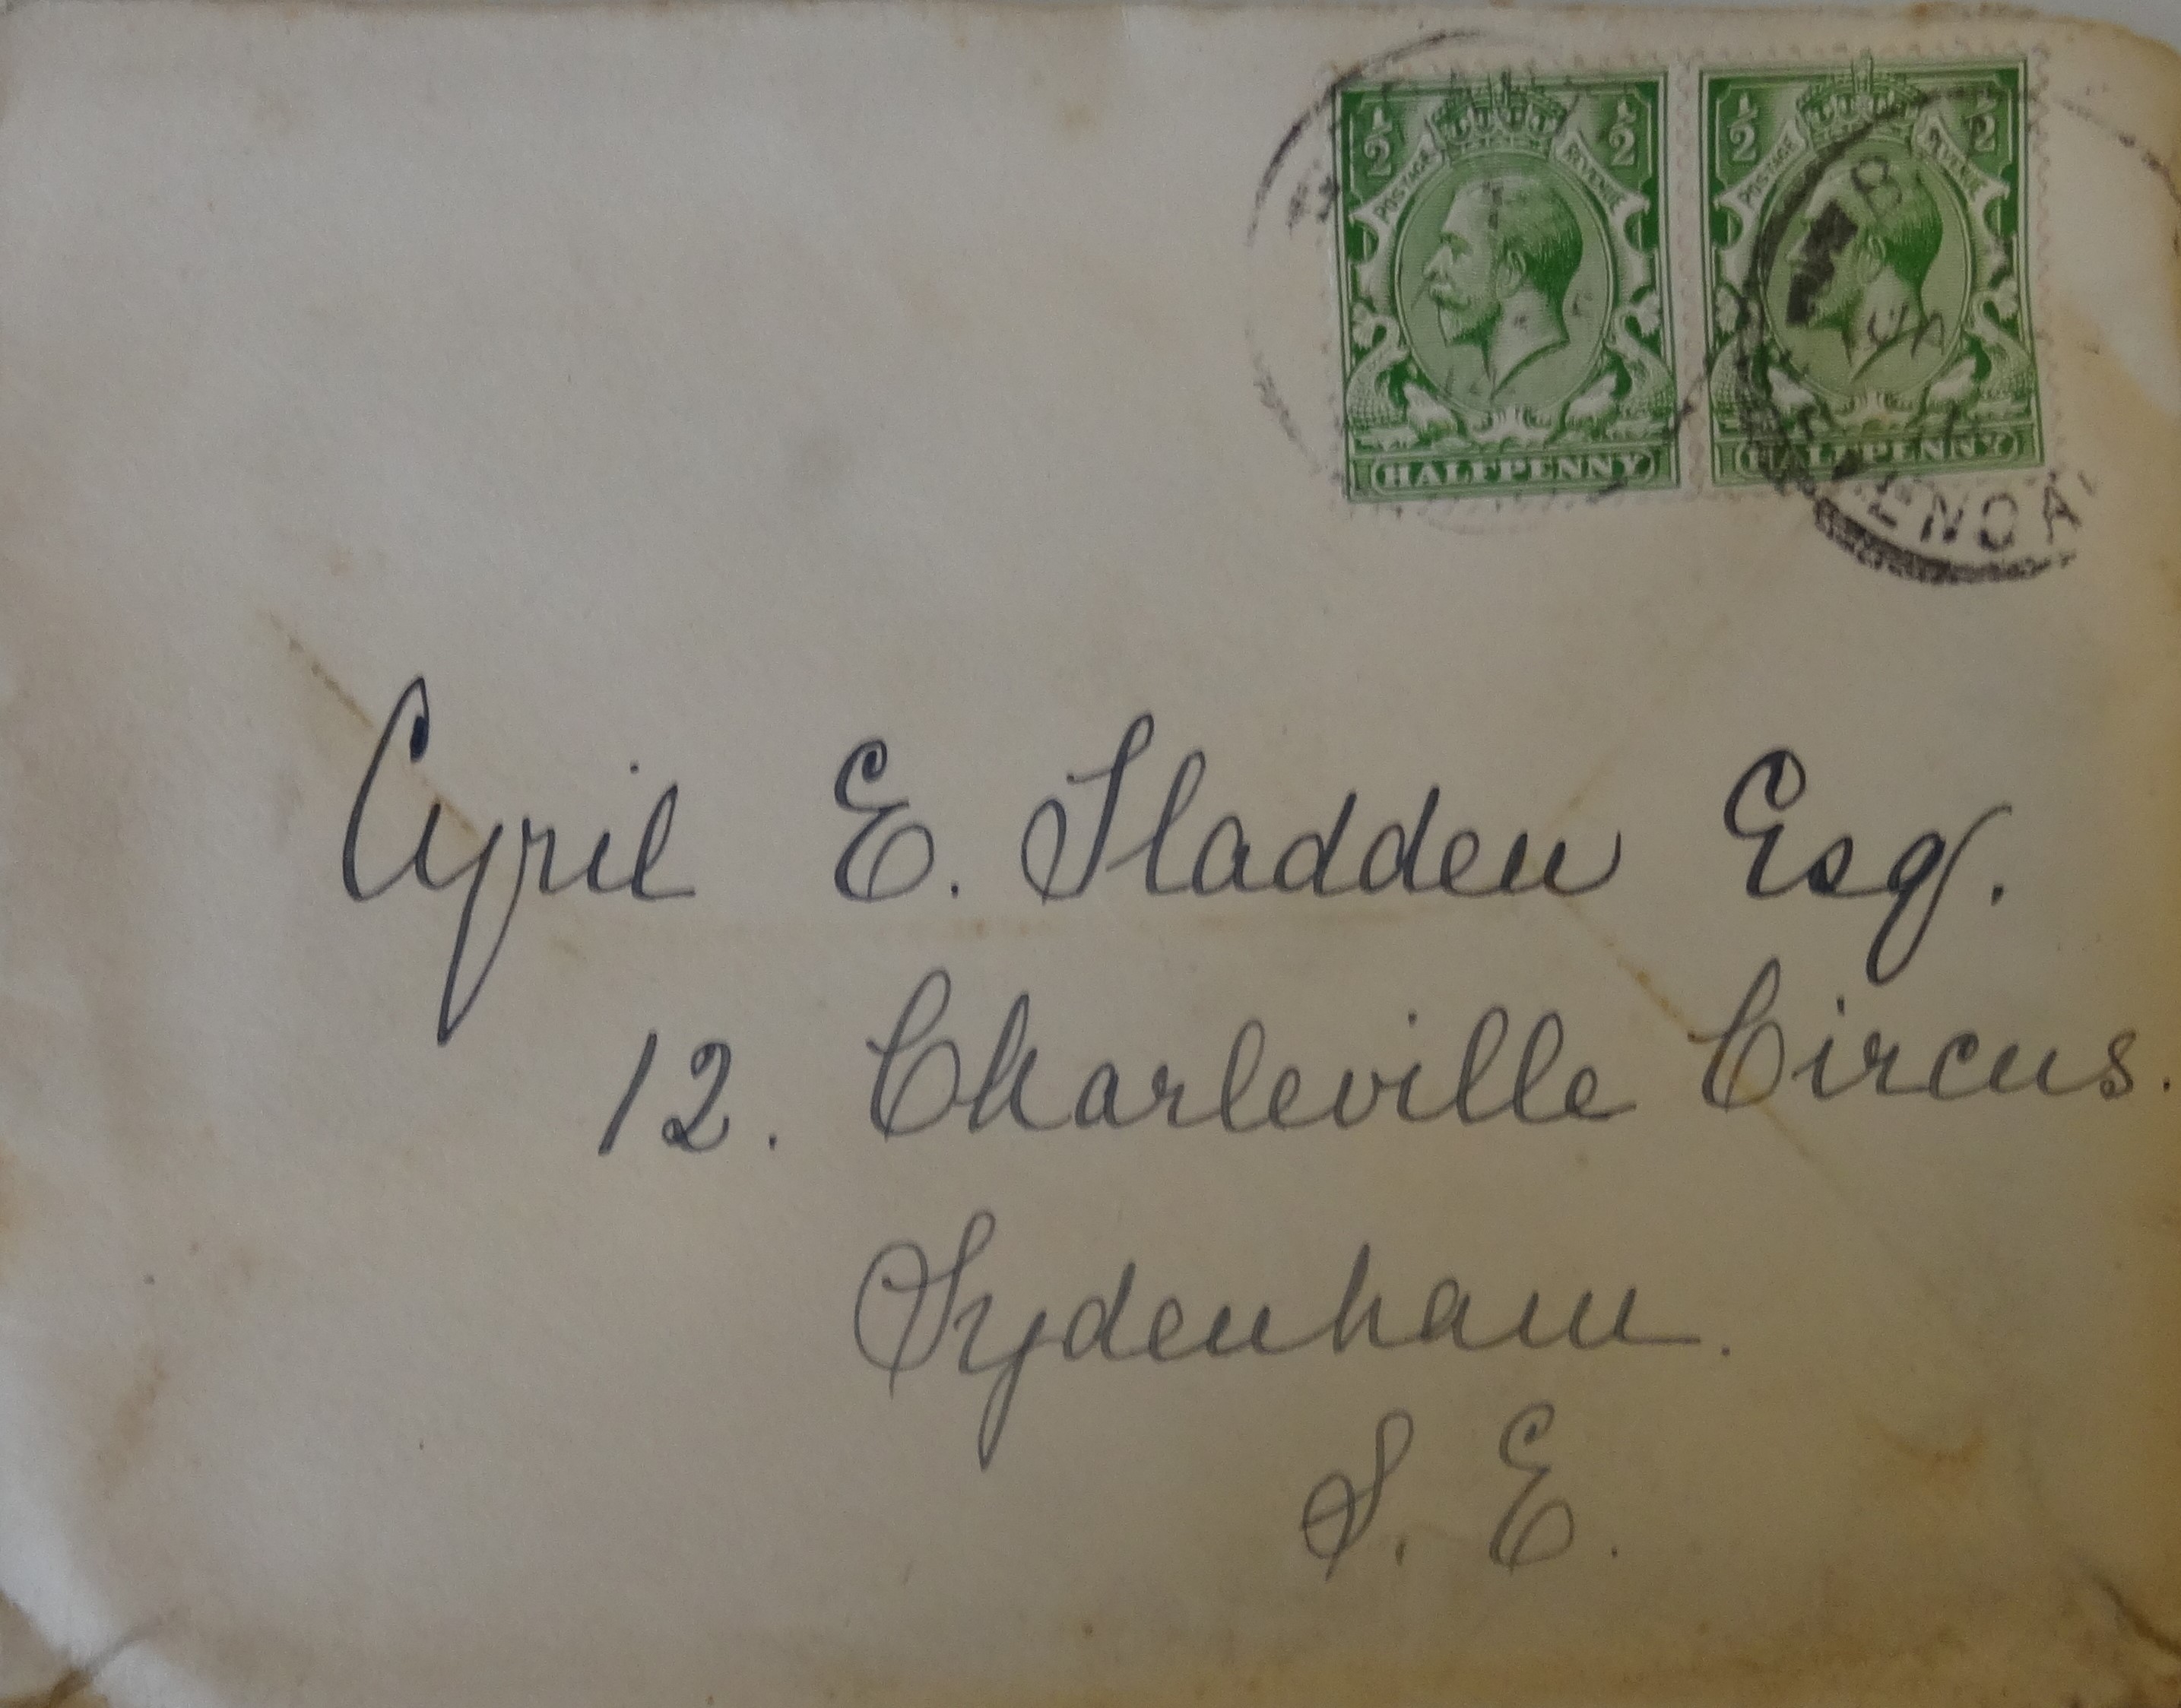 1/2 POSTAGE REVENUE 1/2
HALFPENNY
1/2 POSTAGE REVENUE 1/2
HALFPENNY
Cyril E. Sladden Esq.
12. Charleville Circus.
Sydenham.
S. E.